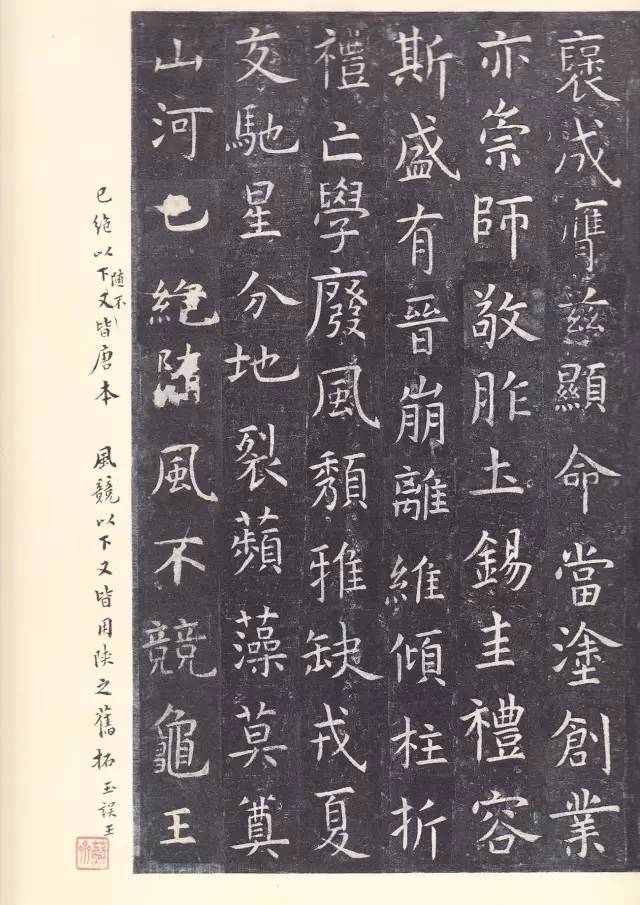 褒成膺茲顯命當塗創業
亦崇師敬胙土錫圭禮容
斯盛有晉崩離維傾柱折
禮亡學廢風頹雅缺戎夏
交馳星分地裂蘋藻莫奠
山河已絕隨風不競龜王
已絕以下又皆唐本
隨不
風競以下又皆用陝之舊拓 玉誤王